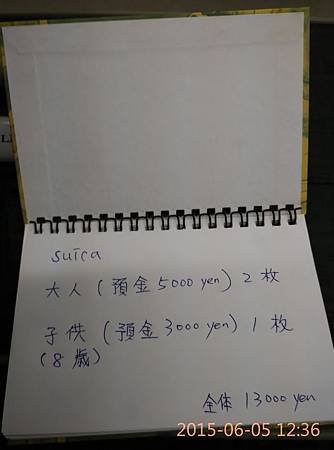 suica
大人 (預金 5000 yen) 2 枚
子供 (預金 3000 yen) 1 枚
(8 歳)
全体 13000 yen
2015-06-05 12:36